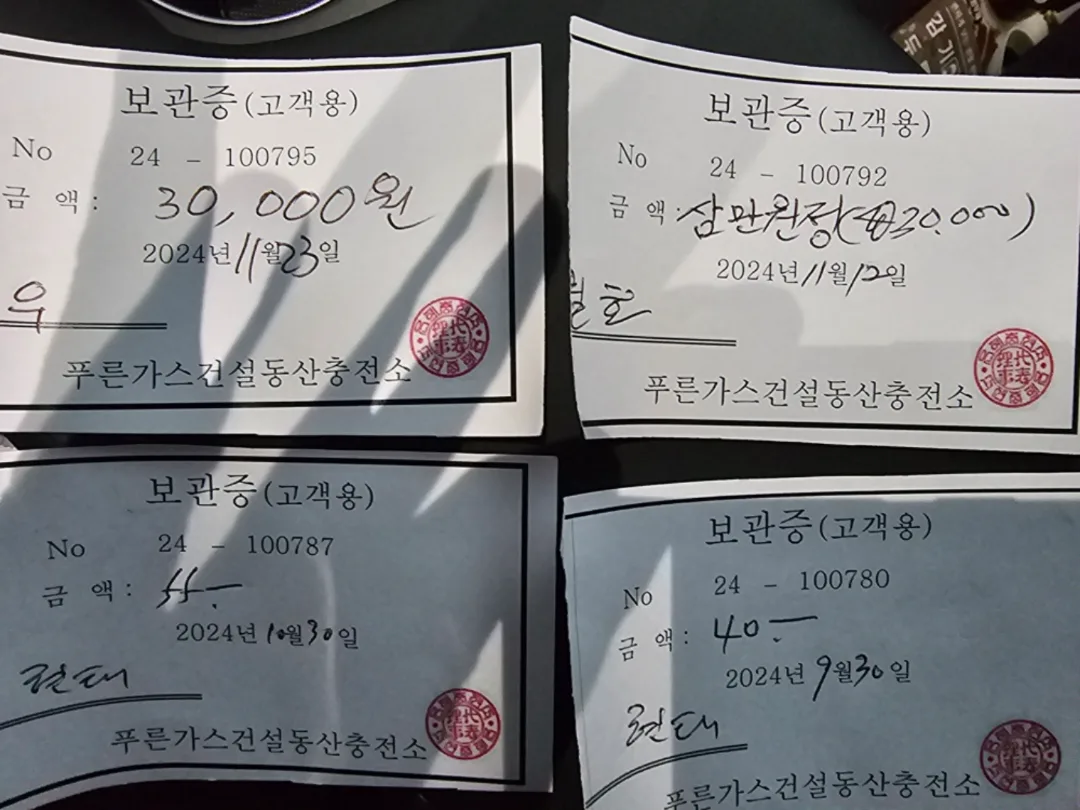 보관증(고객용)
No 24 - 100795
금 액 : 30,000원
2024년 11월 23일
우
푸른가스건설동산충전소
보관증(고객용)
No 24 - 100792
금 액 : 삼만원정(₩30.000)
2024년 11월 12일
호
푸른가스건설동산충전소
보관증(고객용)
No 24 - 100787
금 액 : 55.-
2024년 10월 30일
푸른가스건설동산충전소
보관증(고객용)
No 24 - 100780
금 액 : 40.-
2024년 9월 30일
푸른가스건설동산충전소